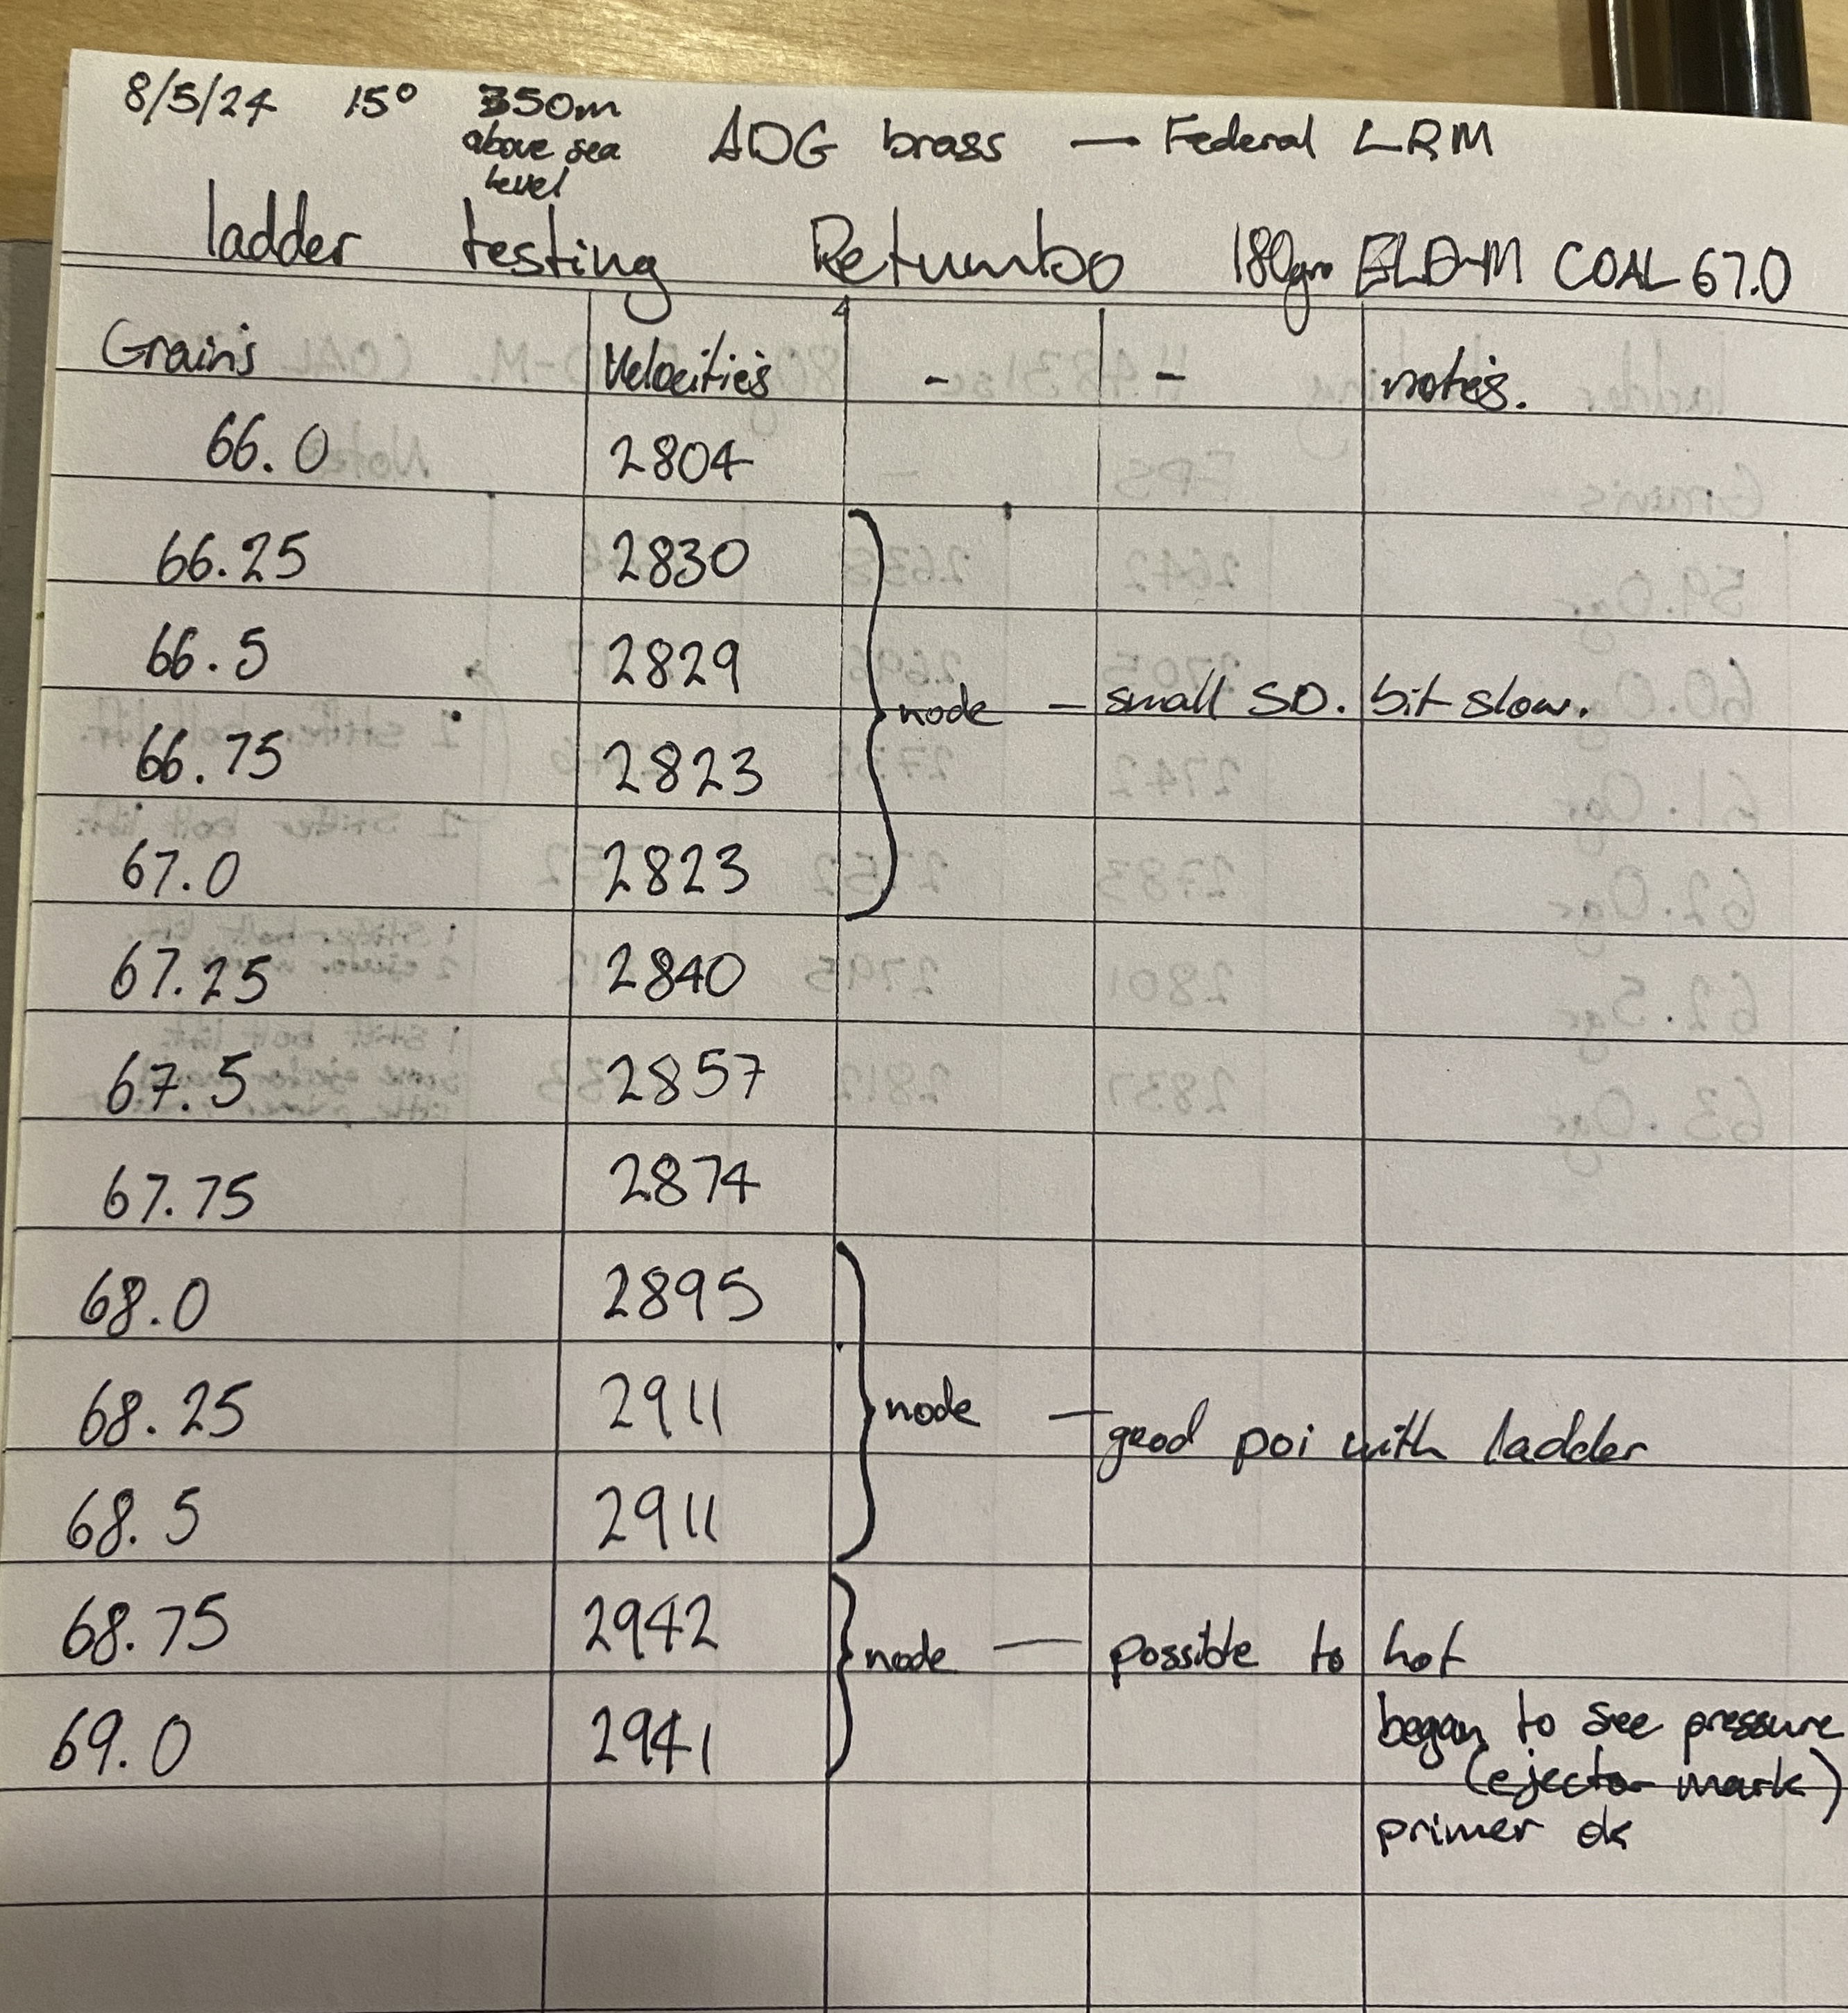 8/5/24 15° 350m above sea level ADG brass — Federal LRM
ladder testing Retumbo 180gr ELD-M COAL 67.0
Grains Velocities - - notes.
66.0 2804
66.25 2830
66.5 2829
node — small SD. bit slow.
66.75 2823
67.0 2823
67.25 2840
67.5 2857
67.75 2874
68.0 2895
68.25 2911
node — good poi with ladder
68.5 2911
68.75 2942
node — possible to hot
69.0 2941
began to see pressure
(ejector mark)
primer ok